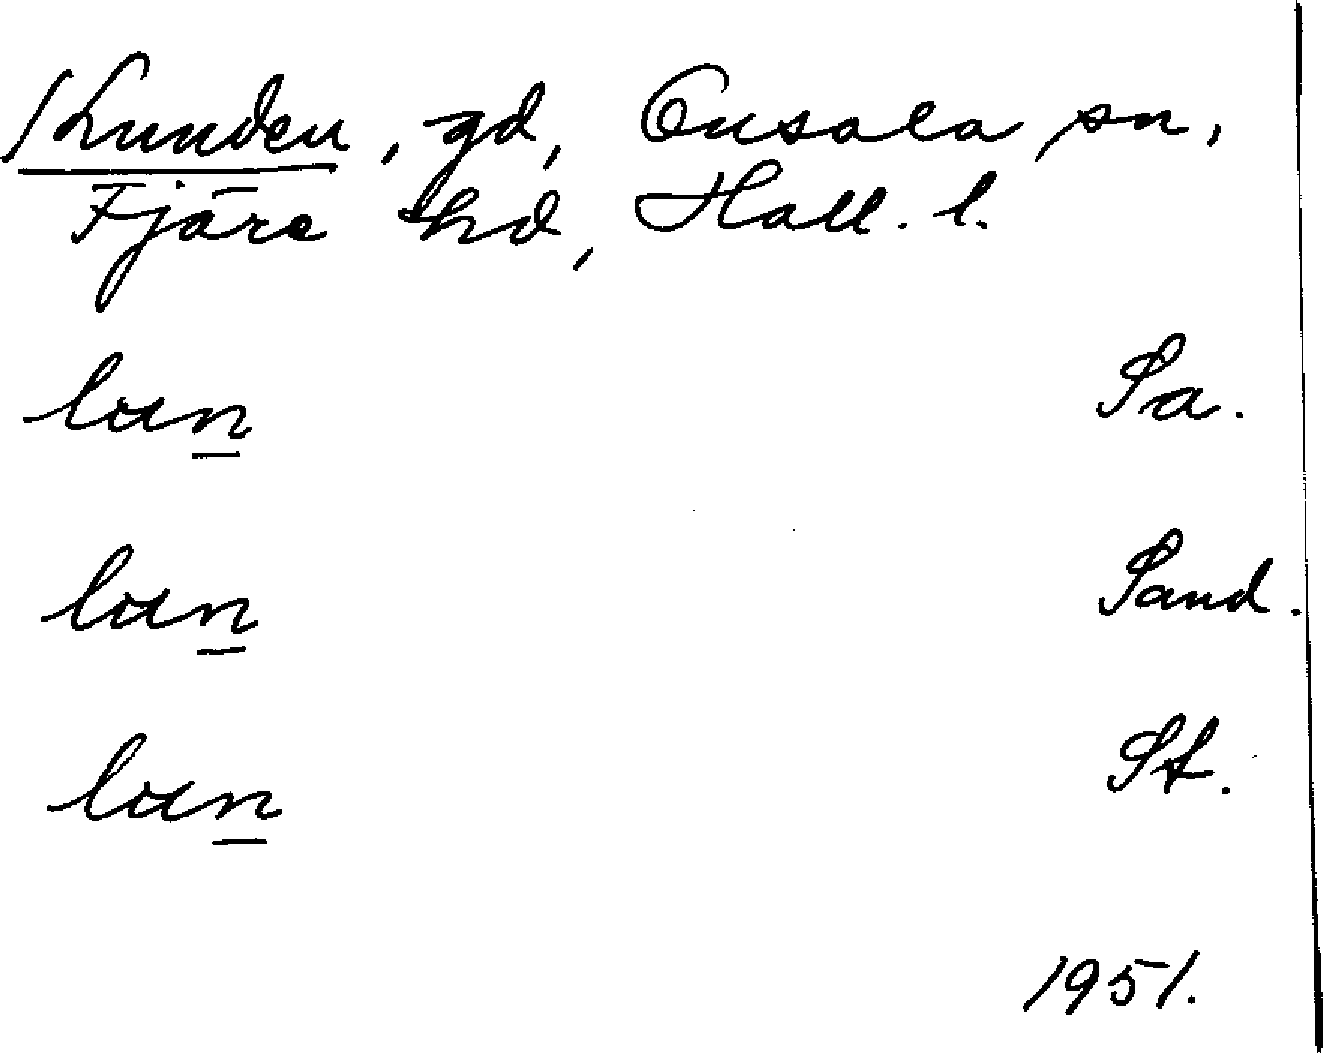 Lunden, gd, Onsala sn,
Fjäre hd, Hall. l.
lun Sa.
lun Sand.
lun St.
1951.